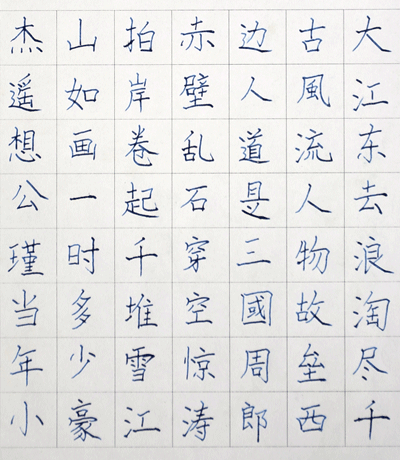 大江东去浪淘尽千
古風流人物故垒西
边人道是三國周郎
赤壁乱石穿空惊涛
拍岸卷起千堆雪江
山如画一时多少豪
杰遥想公瑾当年小